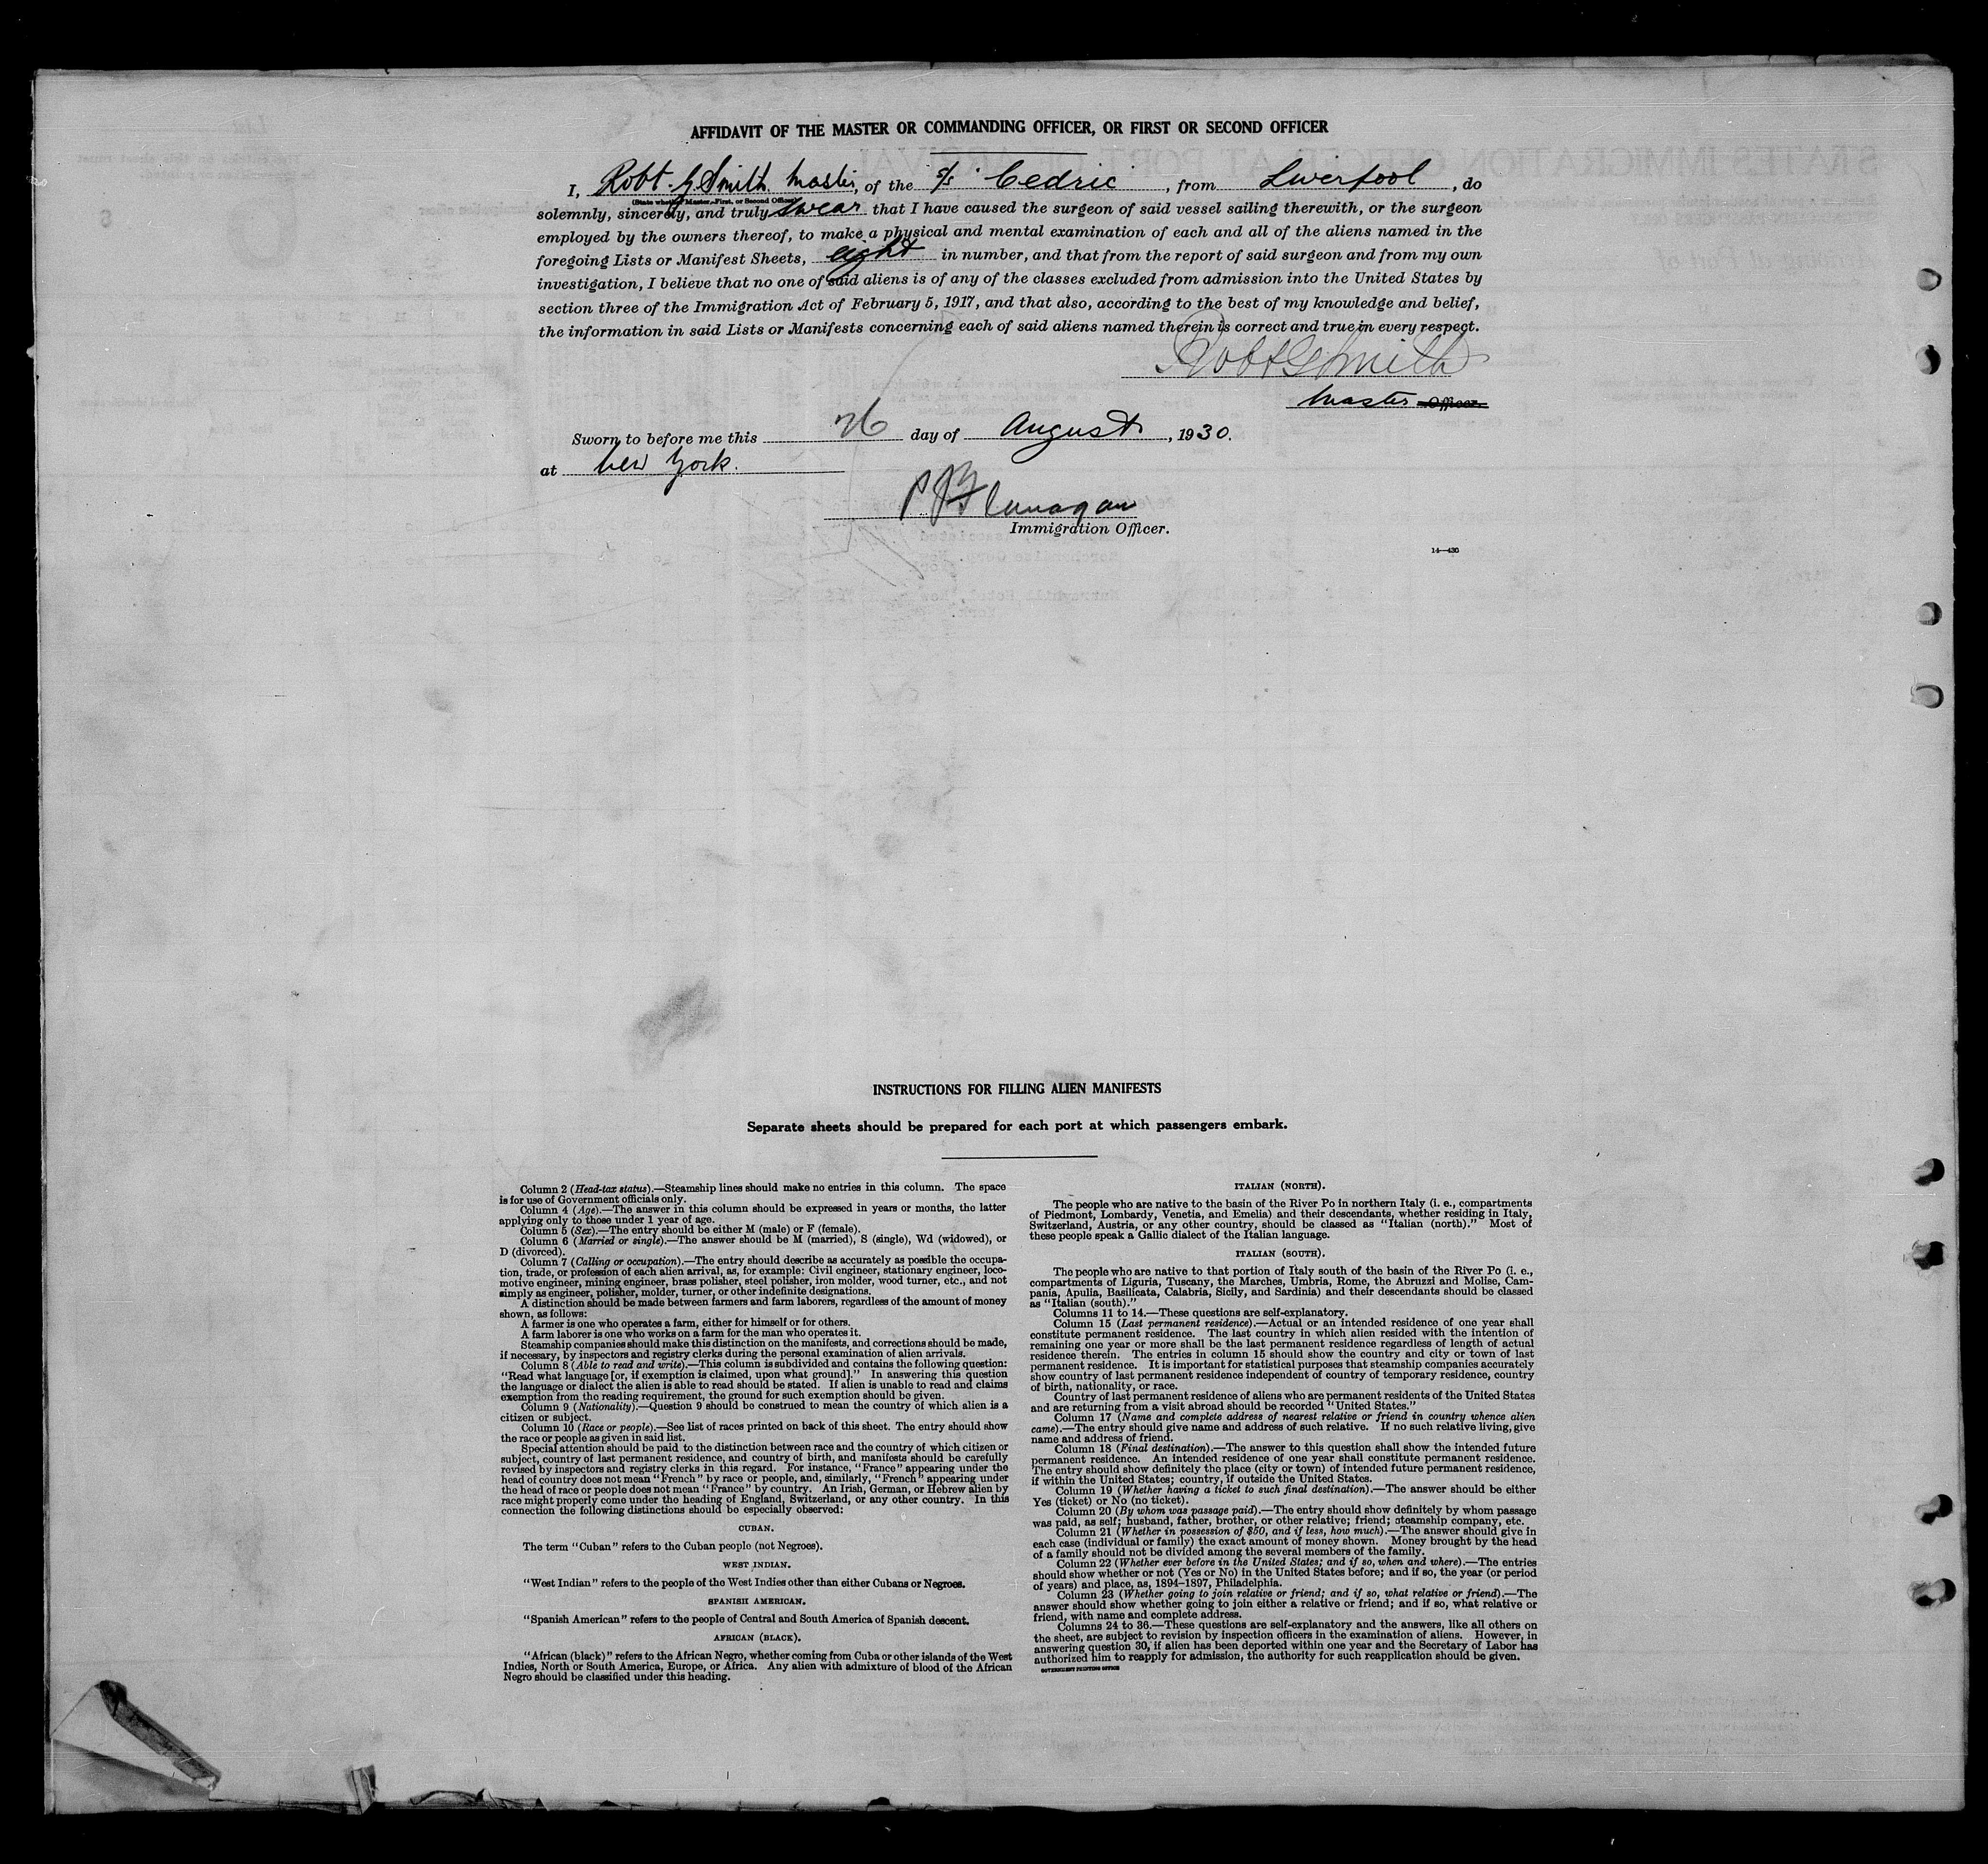 AFFIDAVIT OF THE MASTER OR COMMANDING OFFICER, OR FIRST OR SECOND OFFICER
I, Robt. G Smith. Master, of the S/S "Cedric", from Liverpool, do
(State whether Master, First, or Second Officer)
solemnly, sincerely, and truly swear that I have caused the surgeon of said vessel sailing therewith, or the surgeon
employed by the owners thereof, to make a physical and mental examination of each and all of the aliens named in the
foregoing Lists or Manifest Sheets, eight in number, and that from the report of said surgeon and from my own
investigation, I believe that no one of said aliens is of any of the classes excluded from admission into the United States by
section three of the Immigration Act of February 5, 1917, and that also, according to the best of my knowledge and belief,
the information in said Lists or Manifests concerning each of said aliens named therein is correct and true in every respect.
Robt G Smith
Master Officer.
Sworn to before me this 26 day of August, 1930.
at New York.
P J Flanagan
Immigration Officer.
14—430
INSTRUCTIONS FOR FILLING ALIEN MANIFESTS
Separate sheets should be prepared for each port at which passengers embark.
Column 2 (Head-tax status).—Steamship lines should make no entries in this column. The space
is for use of Government officials only.
Column 4 (Age).—The answer in this column should be expressed in years or months, the latter
applying only to those under 1 year of age.
Column 5 (Sex).—The entry should be either M (male) or F (female).
Column 6 (Married or single).—The answer should be M (married), S (single), Wd (widowed), or
D (divorced).
Column 7 (Calling or occupation).—The entry should describe as accurately as possible the occupa-
tion, trade, or profession of each alien arrival, as, for example: Civil engineer, stationary engineer, loco-
motive engineer, mining engineer, brass polisher, steel polisher, iron molder, wood turner, etc., and not
simply as engineer, polisher, molder, turner, or other indefinite designations.
A distinction should be made between farmers and farm laborers, regardless of the amount of money
shown, as follows:
A farmer is one who operates a farm, either for himself or for others.
A farm laborer is one who works on a farm for the man who operates it.
Steamship companies should make this distinction on the manifests, and corrections should be made,
if necessary, by inspectors and registry clerks during the personal examination of alien arrivals.
Column 8 (Able to read and write).—This column is subdivided and contains the following question:
"Read what language [or, if exemption is claimed, upon what ground]." In answering this question
the language or dialect the alien is able to read should be stated. If alien is unable to read and claims
exemption from the reading requirement, the ground for such exemption should be given.
Column 9 (Nationality).—Question 9 should be construed to mean the country of which alien is a
citizen or subject.
Column 10 (Race or people).—See list of races printed on back of this sheet. The entry should show
the race or people as given in said list.
Special attention should be paid to the distinction between race and the country of which citizen or
subject, country of last permanent residence, and country of birth, and manifests should be carefully
revised by inspectors and registry clerks in this regard. For instance, "France" appearing under the
head of country does not mean "French" by race or people, and, similarly, "French" appearing under
the head of race or people does not mean "France" by country. An Irish, German, or Hebrew alien by
race might properly come under the heading of England, Switzerland, or any other country. In this
connection the following distinctions should be especially observed:
CUBAN.
The term "Cuban" refers to the Cuban people (not Negroes).
WEST INDIAN.
"West Indian" refers to the people of the West Indies other than either Cubans or Negroes.
SPANISH AMERICAN.
"Spanish American" refers to the people of Central and South America of Spanish descent.
AFRICAN (BLACK).
"African (black)" refers to the African Negro, whether coming from Cuba or other islands of the West
Indies, North or South America, Europe, or Africa. Any alien with admixture of blood of the African
Negro should be classified under this heading.
ITALIAN (NORTH).
The people who are native to the basin of the River Po in northern Italy (i. e., compartments
of Piedmont, Lombardy, Venetia, and Emelia) and their descendants, whether residing in Italy,
Switzerland, Austria, or any other country, should be classed as "Italian (north)." Most of
these people speak a Gallic dialect of the Italian language.
ITALIAN (SOUTH).
The people who are native to that portion of Italy south of the basin of the River Po (i. e.,
compartments of Liguria, Tuscany, the Marches, Umbria, Rome, the Abruzzi and Molise, Cam-
pania, Apulia, Basilicata, Calabria, Sicily, and Sardinia) and their descendants should be classed
as "Italian (south)."
Columns 11 to 14.—These questions are self-explanatory.
Column 15 (Last permanent residence).—Actual or an intended residence of one year shall
constitute permanent residence. The last country in which alien resided with the intention of
remaining one year or more shall be the last permanent residence regardless of length of actual
residence therein. The entries in column 15 should show the country and city or town of last
permanent residence. It is important for statistical purposes that steamship companies accurately
show country of last permanent residence independent of country of temporary residence, country
of birth, nationality, or race.
Country of last permanent residence of aliens who are permanent residents of the United States
and are returning from a visit abroad should be recorded "United States."
Column 17 (Name and complete address of nearest relative or friend in country whence alien
came).—The entry should give name and address of such relative. If no such relative living, give
name and address of friend.
Column 18 (Final destination).—The answer to this question shall show the intended future
permanent residence. An intended residence of one year shall constitute permanent residence.
The entry should show definitely the place (city or town) of intended future permanent residence,
if within the United States; country, if outside the United States.
Column 19 (Whether having a ticket to such final destination).—The answer should be either
Yes (ticket) or No (no ticket).
Column 20 (By whom was passage paid).—The entry should show definitely by whom passage
was paid, as self; husband, father, brother, or other relative; friend; steamship company, etc.
Column 21 (Whether in possession of $50, and if less, how much).—The answer should give in
each case (individual or family) the exact amount of money shown. Money brought by the head
of a family should not be divided among the several members of the family.
Column 22 (Whether ever before in the United States; and if so, when and where).—The entries
should show whether or not (Yes or No) in the United States before; and if so, the year (or period
of years) and place, as, 1894-1897, Philadelphia.
Column 23 (Whether going to join relative or friend; and if so, what relative or friend).—The
answer should show whether going to join either a relative or friend; and if so, what relative or
friend, with name and complete address.
Columns 24 to 36.—These questions are self-explanatory and the answers, like all others on
the sheet, are subject to revision by inspection officers in the examination of aliens. However, in
answering question 30, if alien has been deported within one year and the Secretary of Labor has
authorized him to reapply for admission, the authority for such reapplication should be given.
GOVERNMENT PRINTING OFFICE